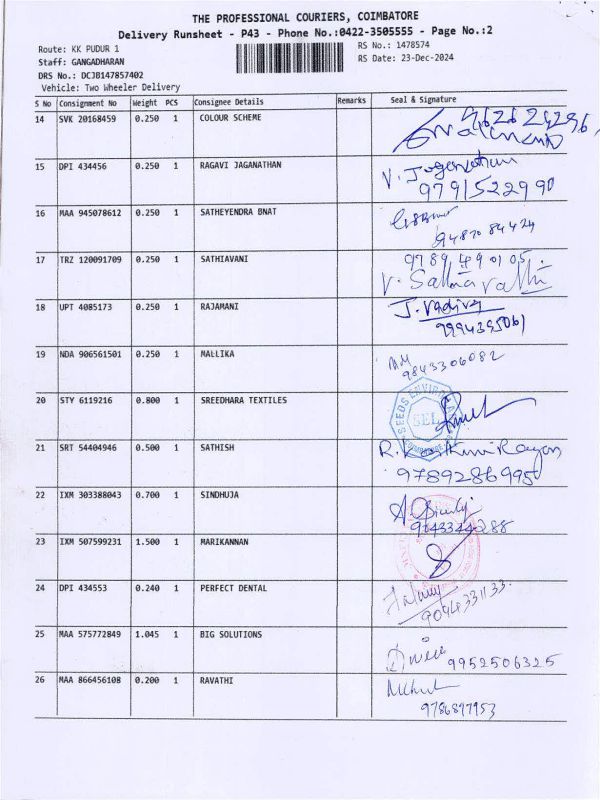 THE PROFESSIONAL COURIERS, COIMBATORE
Delivery Runsheet - P43 - Phone No.:0422-3505555 - Page No.:2
Route: KK PUDUR 1
RS No.: 1478574
Staff: GANGADHARAN
RS Date: 23-Dec-2024
DRS No.: DCJB147857402
Vehicle: Two Wheeler Delivery
S No Consignment No Weight PCS Consignee Details Remarks Seal & Signature
14 SVK 20168459 0.250 1 COLOUR SCHEME
15 DPI 434456 0.250 1 RAGAVI JAGANATHAN V. Jaganathan
9791522990
16 MAA 945078612 0.250 1 SATHEYENDRA BNAT
9487084424
17 TRZ 120091709 0.250 1 SATHIAVANI 9789490105
V. Sathiavathi
18 UPT 4085173 0.250 1 RAJAMANI J. Vadiva
9994395061
19 NDA 906561501 0.250 1 MALLIKA
9843306082
20 STY 6119216 0.800 1 SREEDHARA TEXTILES SEEDS SEL
21 SRT 54404946 0.500 1 SATHISH
9789286995
22 IXM 303388043 0.700 1 SINDHUJA
9043344288
23 IXM 507599231 1.500 1 MARIKANNAN
24 DPI 434553 0.240 1 PERFECT DENTAL
9094331133
25 MAA 575772849 1.045 1 BIG SOLUTIONS
9952506325
26 MAA 866456108 0.200 1 RAVATHI
9786897953